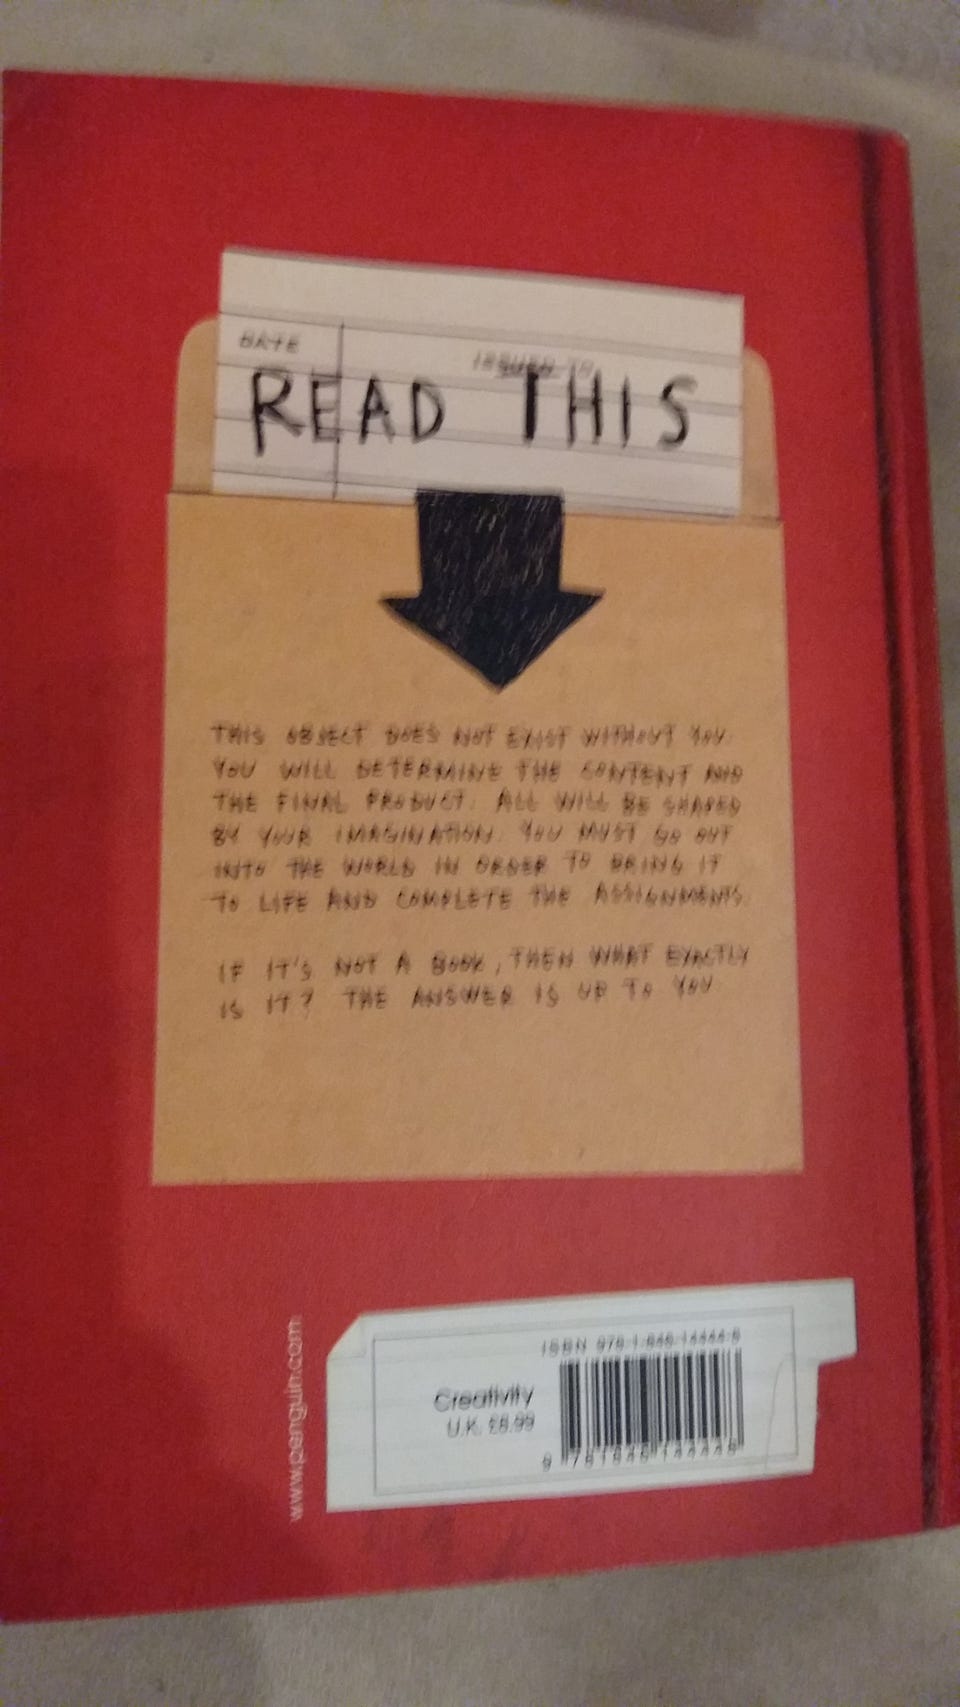 DATE
ISSUED TO
READ THIS
THIS OBJECT DOES NOT EXIST WITHOUT YOU.
YOU WILL DETERMINE THE CONTENT AND
THE FINAL PRODUCT. ALL WILL BE SHAPED
BY YOUR IMAGINATION. YOU MUST GO OUT
INTO THE WORLD IN ORDER TO BRING IT
TO LIFE AND COMPLETE THE ASSIGNMENTS.
IF IT'S NOT A BOOK, THEN WHAT EXACTLY
IS IT? THE ANSWER IS UP TO YOU.
www.penguin.com
ISBN 978-1-846-14444-8
Creativity
U.K. £8.99
9 781846 144448